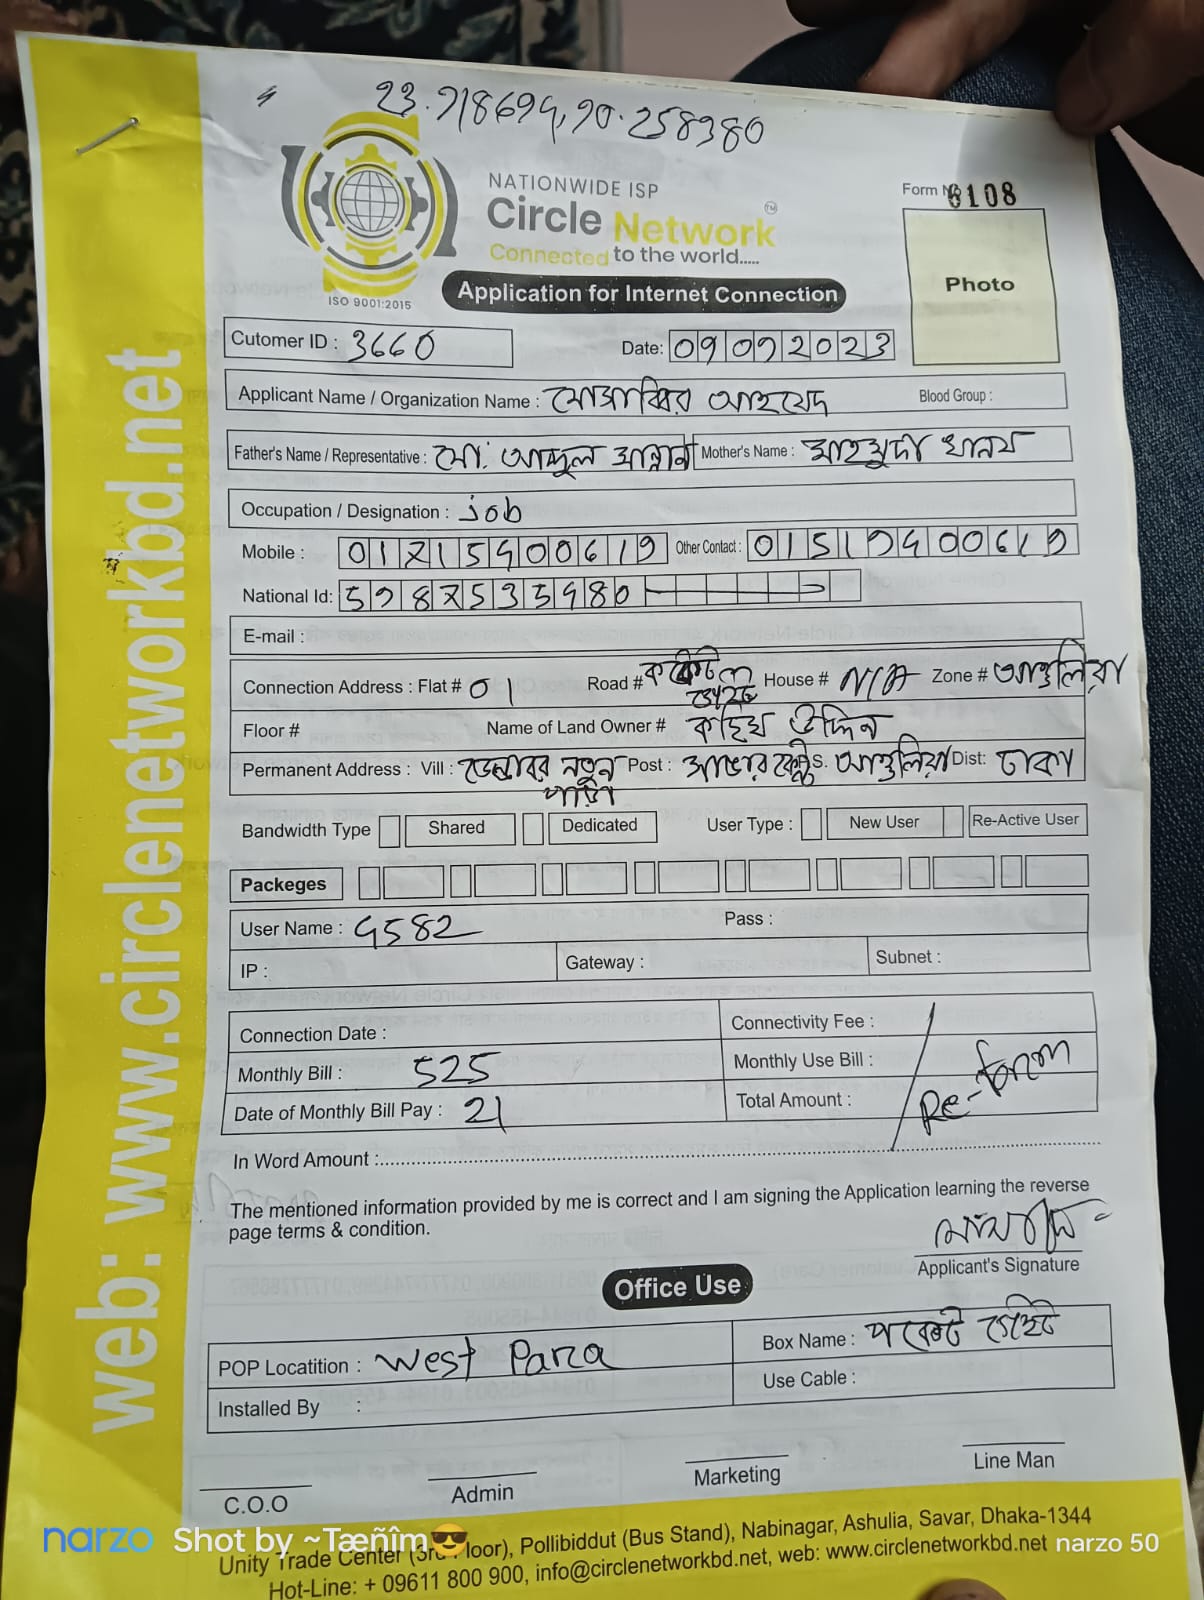 23.918694,90.258380
NATIONWIDE ISP
Circle Network TM
Connected to the world.....
ISO 9001:2015
Form No 6108
Photo
Application for Internet Connection
Cutomer ID : 3660
Date: 09072023
Applicant Name / Organization Name : মোসাব্বির আহমেদ Blood Group :
Father's Name / Representative : মো: আব্দুল মান্নান Mother's Name : মাহমুদা খানম
Occupation / Designation : job
Mobile : 01715400619 Other Contact : 01517400619
National Id: 5987535980
E-mail :
Connection Address : Flat # 01 Road # House # N/A Zone # আশুলিয়া
Floor # Name of Land Owner # উদ্দিন
Permanent Address : Vill : নতুন পাড়া Post : সাভার P.S. আশুলিয়া Dist: ঢাকা
Bandwidth Type Shared Dedicated User Type : New User Re-Active User
Packeges
User Name : G582 Pass :
IP : Gateway : Subnet :
Connection Date : Connectivity Fee :
Monthly Bill : 525 Monthly Use Bill :
Date of Monthly Bill Pay : 21 Total Amount :
Re-form
In Word Amount :
The mentioned information provided by me is correct and I am signing the Application learning the reverse
page terms & condition.
Applicant's Signature
Office Use
POP Locatition : West Para Box Name : পকেট গেইট
Installed By : Use Cable :
C.O.O Admin Marketing Line Man
Unity Trade Center (3rd Floor), Pollibiddut (Bus Stand), Nabinagar, Ashulia, Savar, Dhaka-1344
Hot-Line: + 09611 800 900, info@circlenetworkbd.net, web: www.circlenetworkbd.net
web: www.circlenetworkbd.net
narzo Shot by ~Tæñîm😎 narzo 50